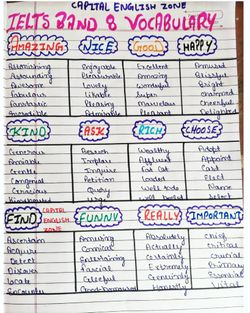 CAPITAL ENGLISH ZONE
IELTS BAND 8 VOCABULARY
AMAZING NICE GOOD HAPPY
Astonishing Enjoyable Excellent Amused
Astounding Pleasurable Amazing Blissful
Awesome Lovely Wonderful Bright
Fabulous Likable Super Charmed
Fantastic Pleasing Marvelous Cheerful
Incredible Admirable Pleasant Delighted
KIND ASK RICH CHOOSE
Generous Beseech Wealthy Adopt
Amiable Implore Affluent Appoint
Gentle Inquire Fat Cat Cast
Congenial Petition Loaded Elect
Gracious Query Well to do Name
Kindhearted Urge Well heeled Select
FIND CAPITAL ENGLISH ZONE FUNNY REALLY IMPORTANT
Ascertain Amusing Absolutely Chief
Acquire Comical Actually Critical
Detect Entertaining Certainly Crucial
Discover Farcial Extremely Primary
Locate Gleeful Genuinely Essential
Encounter Good-humoured Honestly Vital